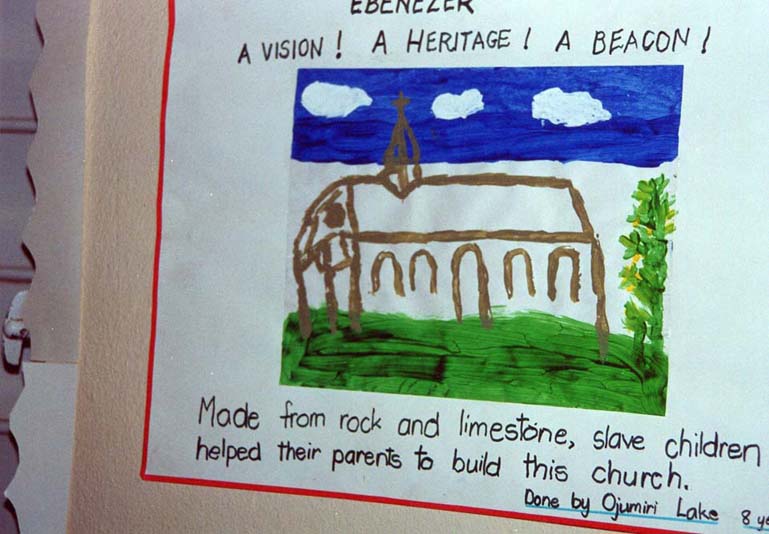 EBENEZER
A VISION! A HERITAGE! A BEACON!
Made from rock and limestone, slave children
helped their parents to build this church.
Done by Ojumiri Lake 8 ye